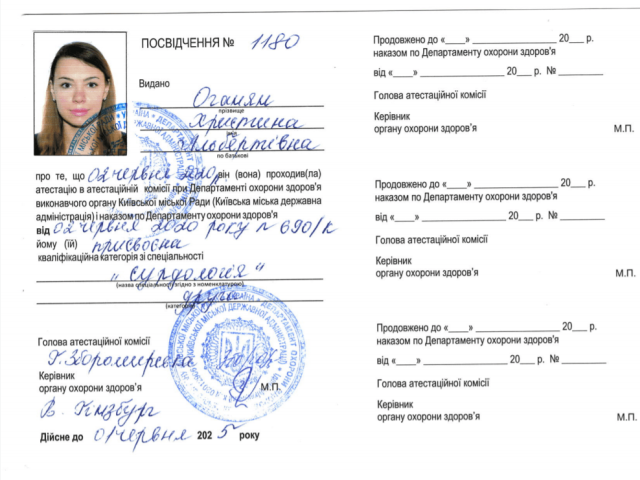 ПОСВІДЧЕННЯ № 1180
Видано
Оганян
прізвище
Христина
ім'я
Альбертівна
по батькові
про те, що 02 червня 2020 р. він (вона) проходив(ла)
атестацію в атестаційній комісії при Департаменті охорони здоров'я
виконавчого органу Київської міської Ради (Київська міська державна
адміністрація) і наказом по Департаменту охорони здоров'я
від 02 червня 2020 року № 690/к
йому (їй) присвоєна
кваліфікаційна категорія зі спеціальності
„ Сурдологія "
(назва спеціальності згідно з номенклатурою)
друга
(категорія)
Голова атестаційної комісії
Керівник
органу охорони здоров'я М.П.
В. Гінзбург
Дійсне до 01 червня 2025 року
Продовжено до «____» ________________ 20___ р.
наказом по Департаменту охорони здоров'я
від «____» ________________ 20___ р. № _________
Голова атестаційної комісії
Керівник
органу охорони здоров'я М.П.
Продовжено до «____» ________________ 20___ р.
наказом по Департаменту охорони здоров'я
від «____» ________________ 20___ р. № _________
Голова атестаційної комісії
Керівник
органу охорони здоров'я М.П.
Продовжено до «____» ________________ 20___ р.
наказом по Департаменту охорони здоров'я
від «____» ________________ 20___ р. № _________
Голова атестаційної комісії
Керівник
органу охорони здоров'я М.П.